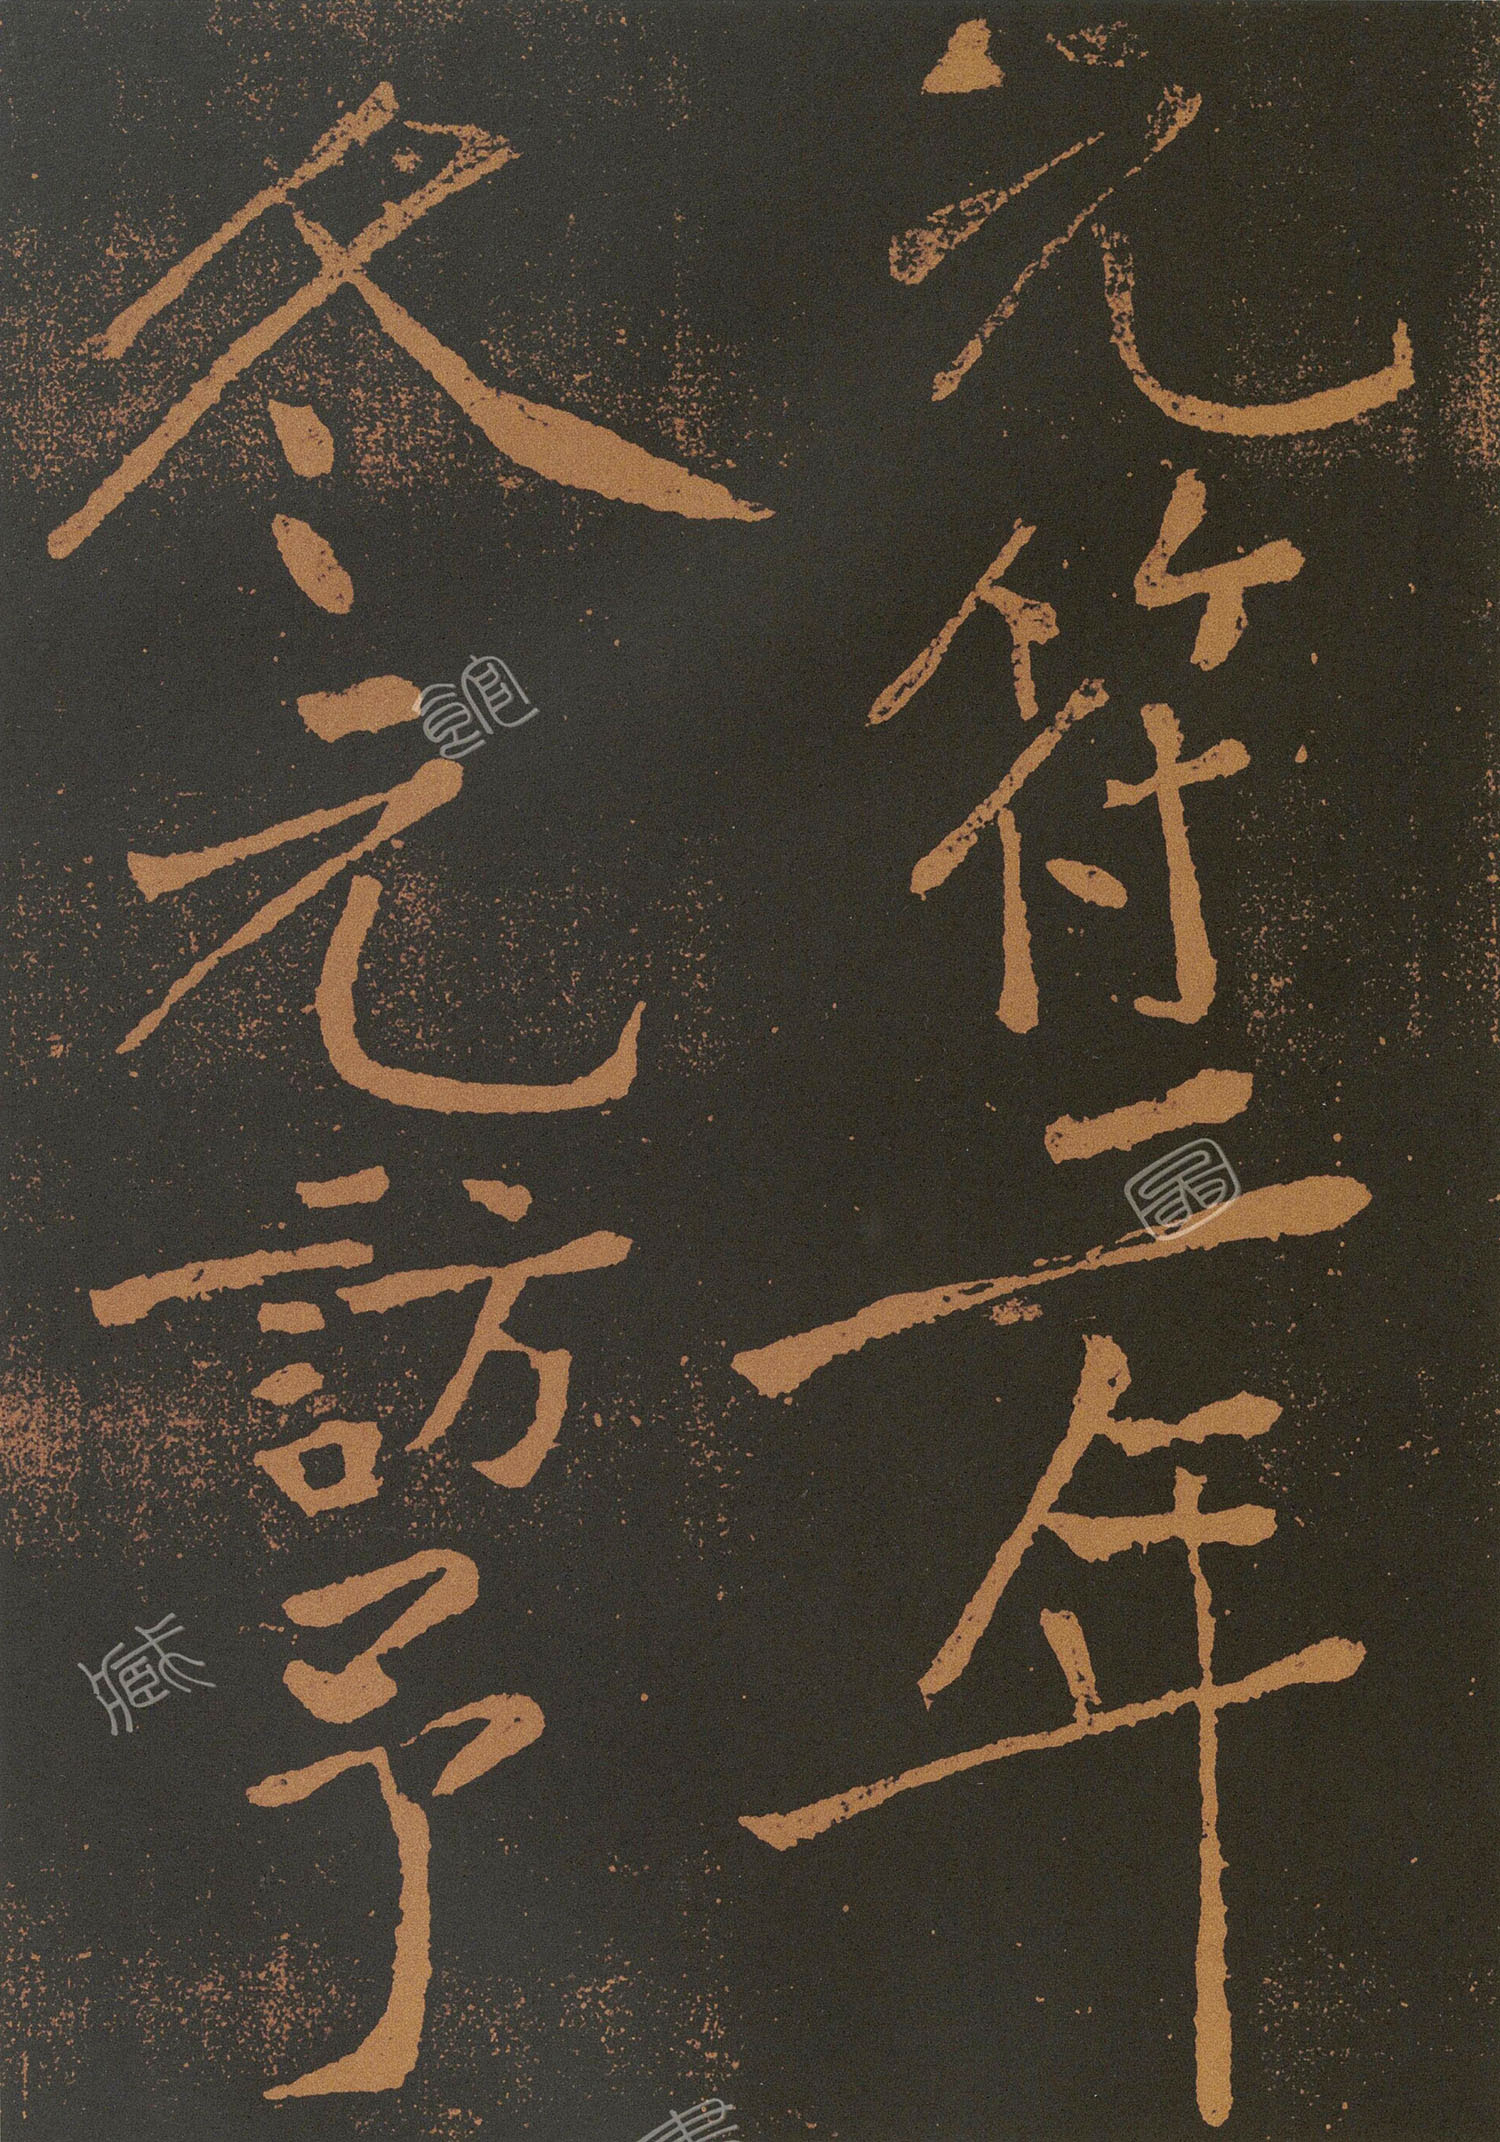 元符二年
冬元訪予